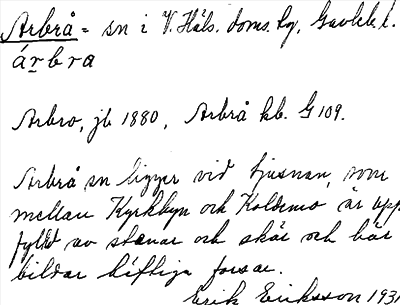 Arbrå = sn i V. Häls. doms. hg, Gävleb. l.
árbra
Arbro, jb 1880, Arbrå kb. G 109.
Arbrå sn ligger vid Ljusnan, som
mellan Kyrkbyn och Koldemo är upp-
fylld av stenar och skär och här
bildar häftiga forsar.
Erik Eriksson 193